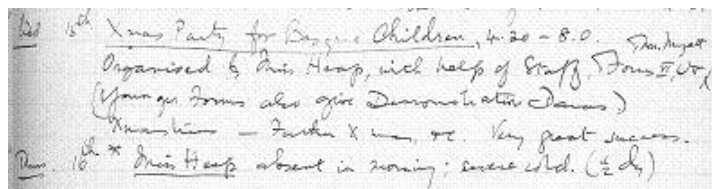 Wed 15th Xmas Party for Basque Children, 4.30 – 8.0.
Organised by Miss Heap, with help of Staff, Forms II, 
(Younger Forms also give Demonstration Dances)
– Father Xmas, etc. Very great success.
Thurs. 16th * Miss Heap absent in morning; severe cold. (½ dy)